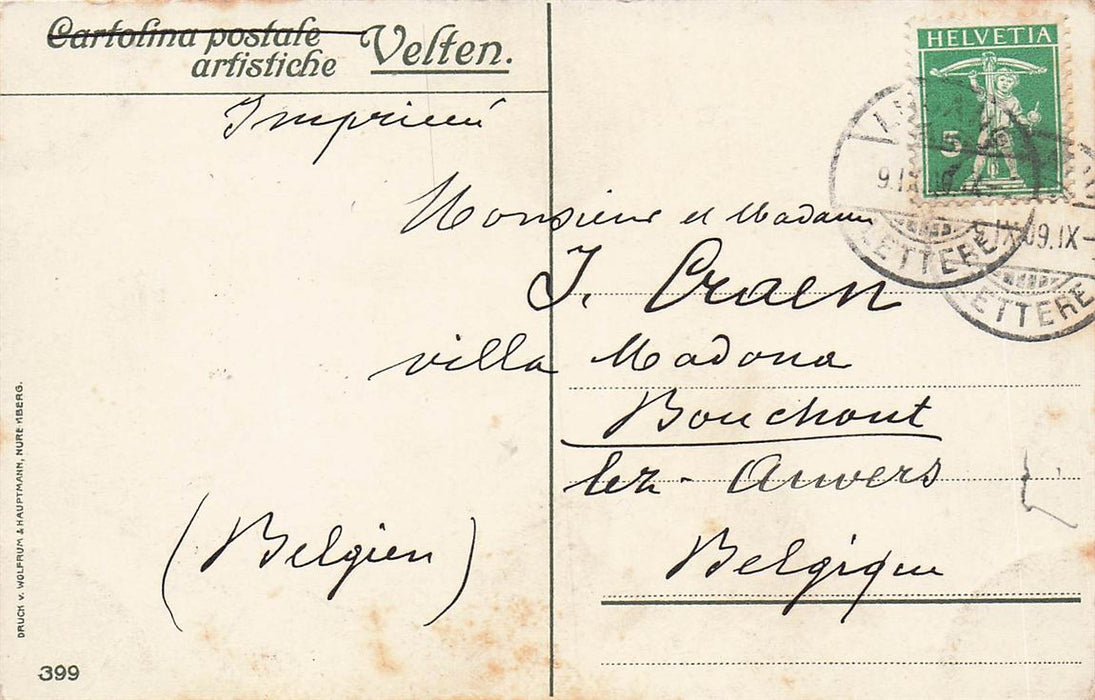 Cartolina postale
artistiche Velten.
Imprimé
Monsieur et Madame
J. Craen
villa Madona
Bouchout
lez- Anvers
Belgique
(Belgien)
HELVETIA
5
9.IX
LETTERE
9.IX-09.IX-
LETTERE
DRUCK v. WOLFRUM & HAUPTMANN, NUREMBERG.
399